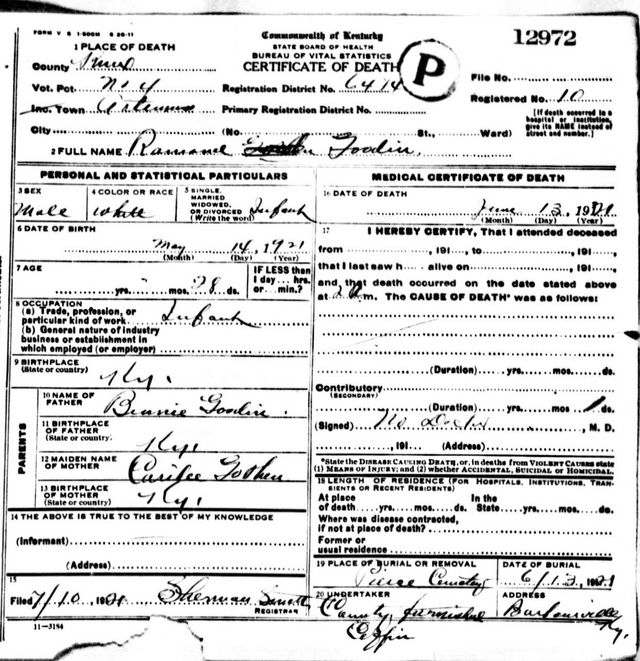 FORM V S 1-500M 6 20-11
Commonwealth of Kentucky
STATE BOARD OF HEALTH
BUREAU OF VITAL STATISTICS
CERTIFICATE OF DEATH
P
12972
1 PLACE OF DEATH
County
Vot. Pct. No 4 Registration District No. 6414
File No.
Inc. Town Artemus Primary Registration District No.
Registered No. 10
City (No. St., Ward)
[If death occurred in a hospital or institution, give its NAME instead of street and number.]
2 FULL NAME Goodin
PERSONAL AND STATISTICAL PARTICULARS
3 SEX Male
4 COLOR OR RACE White
5 SINGLE, MARRIED WIDOWED, OR DIVORCED (Write the word) Infant
6 DATE OF BIRTH
May 14, 1921
(Month) (Day) (Year)
7 AGE
yrs. mos. 28 ds.
IF LESS than 1 day... hrs. or... min.?
8 OCCUPATION
(a) Trade, profession, or particular kind of work Infant
(b) General nature of industry business or establishment in which employed (or employer)
9 BIRTHPLACE
(State or country)
Ky.
PARENTS
10 NAME OF FATHER Bennie Goodin.
11 BIRTHPLACE OF FATHER (State or country) Ky.
12 MAIDEN NAME OF MOTHER
13 BIRTHPLACE OF MOTHER (State or country) Ky.
14 THE ABOVE IS TRUE TO THE BEST OF MY KNOWLEDGE
(Informant)
(Address)
15
Filed 7/10, 1921 Sherman
REGISTRAR
11-3184
MEDICAL CERTIFICATE OF DEATH
16 DATE OF DEATH
June 13, 1921
(Month) (Day) (Year)
17 I HEREBY CERTIFY, That I attended deceased
from , 191 , to , 191 ,
that I last saw h alive on , 191 ,
and that death occurred on the date stated above
at m. The CAUSE OF DEATH* was as follows:
(Duration) yrs. mos. ds.
Contributory
(SECONDARY)
(Duration) yrs. mos. ds.
(Signed) No Doctor, M. D.
, 191 (Address)
*State the DISEASE CAUSING DEATH, or, in deaths from VIOLENT CAUSES state
(1) MEANS OF INJURY; and (2) whether ACCIDENTAL, SUICIDAL OR HOMICIDAL.
18 LENGTH OF RESIDENCE (FOR HOSPITALS, INSTITUTIONS, TRANSIENTS OR RECENT RESIDENTS)
At place of death yrs. mos. ds. In the State yrs. mos. ds.
Where was disease contracted,
if not at place of death?
Former or
usual residence
19 PLACE OF BURIAL OR REMOVAL
Cemetery
DATE OF BURIAL
6/13, 1921
20 UNDERTAKER
County furnished
Coffin
ADDRESS
Barbourville
Ky.